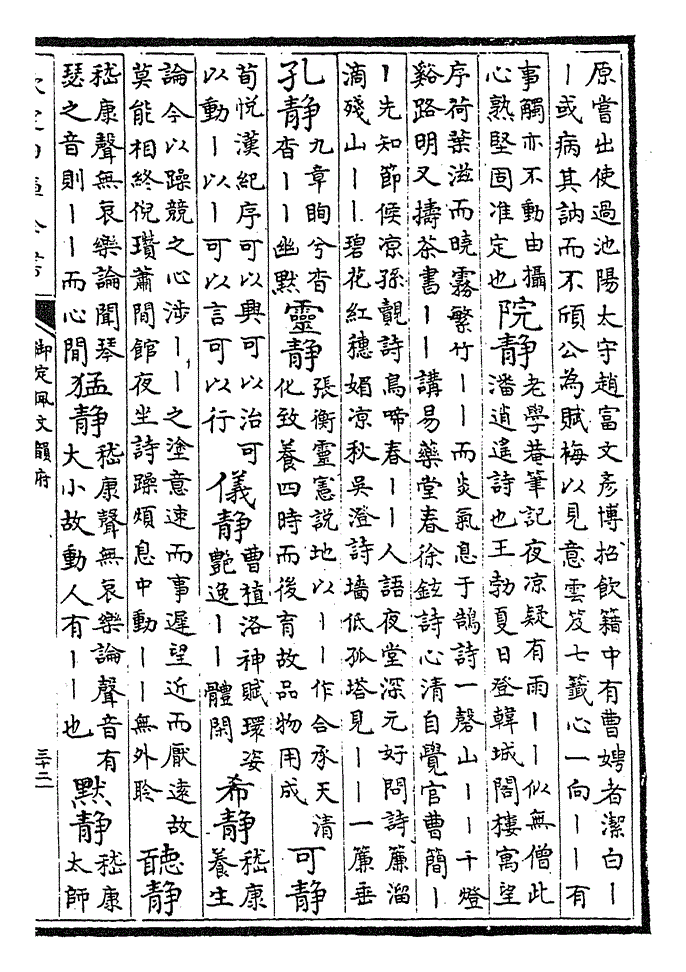 原嘗出使過池陽太守趙富文彥博招飲籍中有曹娉者潔白丨
丨或病其訥而不頎公為賦梅以見意雲笈七籤心一向丨丨有
事觸亦不動由攝
心熟堅固准定也
院靜
老學菴筆記夜凉疑有雨丨丨似無僧此
潘逍遙詩也王勃夏日登韓城閣樓寓望
序荷葉滋而曉霧繁竹丨丨而炎氣息于鵠詩一磬山丨丨千燈
谿路明又擣茶書丨丨講易藥堂春徐鉉詩心清自覺官曹簡丨
丨先知節候凉孫覿詩鳥啼春丨丨人語夜堂深元好問詩簾溜
滴殘山丨丨碧花紅穗媚凉秋吳澄詩墻低孤塔見丨丨一簾垂
孔靜
九章眴兮杳
杳丨丨幽默
靈靜
張衡靈憲說地以丨丨作合承天清
化致養四時而後育故品物用成
可靜
荀悅漢紀序可以興可以治可
以動丨以丨可以言可以行
儀靜
曹植洛神賦環姿
艷逸丨丨體閑
希靜
嵇康
養生
論今以躁競之心涉丨丨之塗意速而事遲望近而厭遠故
莫能相終倪瓚蕭閒館夜坐詩躁煩息中動丨丨無外聆
聽靜
嵇康聲無哀樂論聞琴
瑟之音則丨丨而心閒
猛靜
嵇康聲無哀樂論聲音有
大小故動人有丨丨也
默靜
嵇康
太師
御定佩文韻府
三十二